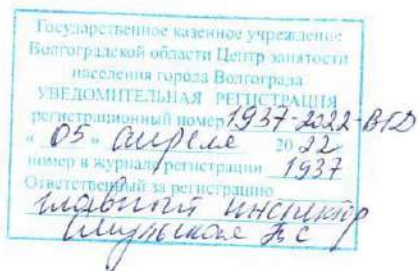 Государственное казенное учреждение
Волгоградской области Центр занятости
населения города Волгограда
УВЕДОМИТЕЛЬНАЯ РЕГИСТРАЦИЯ
регистрационный номер 1937-2022-ВГД
« 05 » апреля 20 22
номер в журнале регистрации 1937
Ответственный за регистрацию
главный инспектор